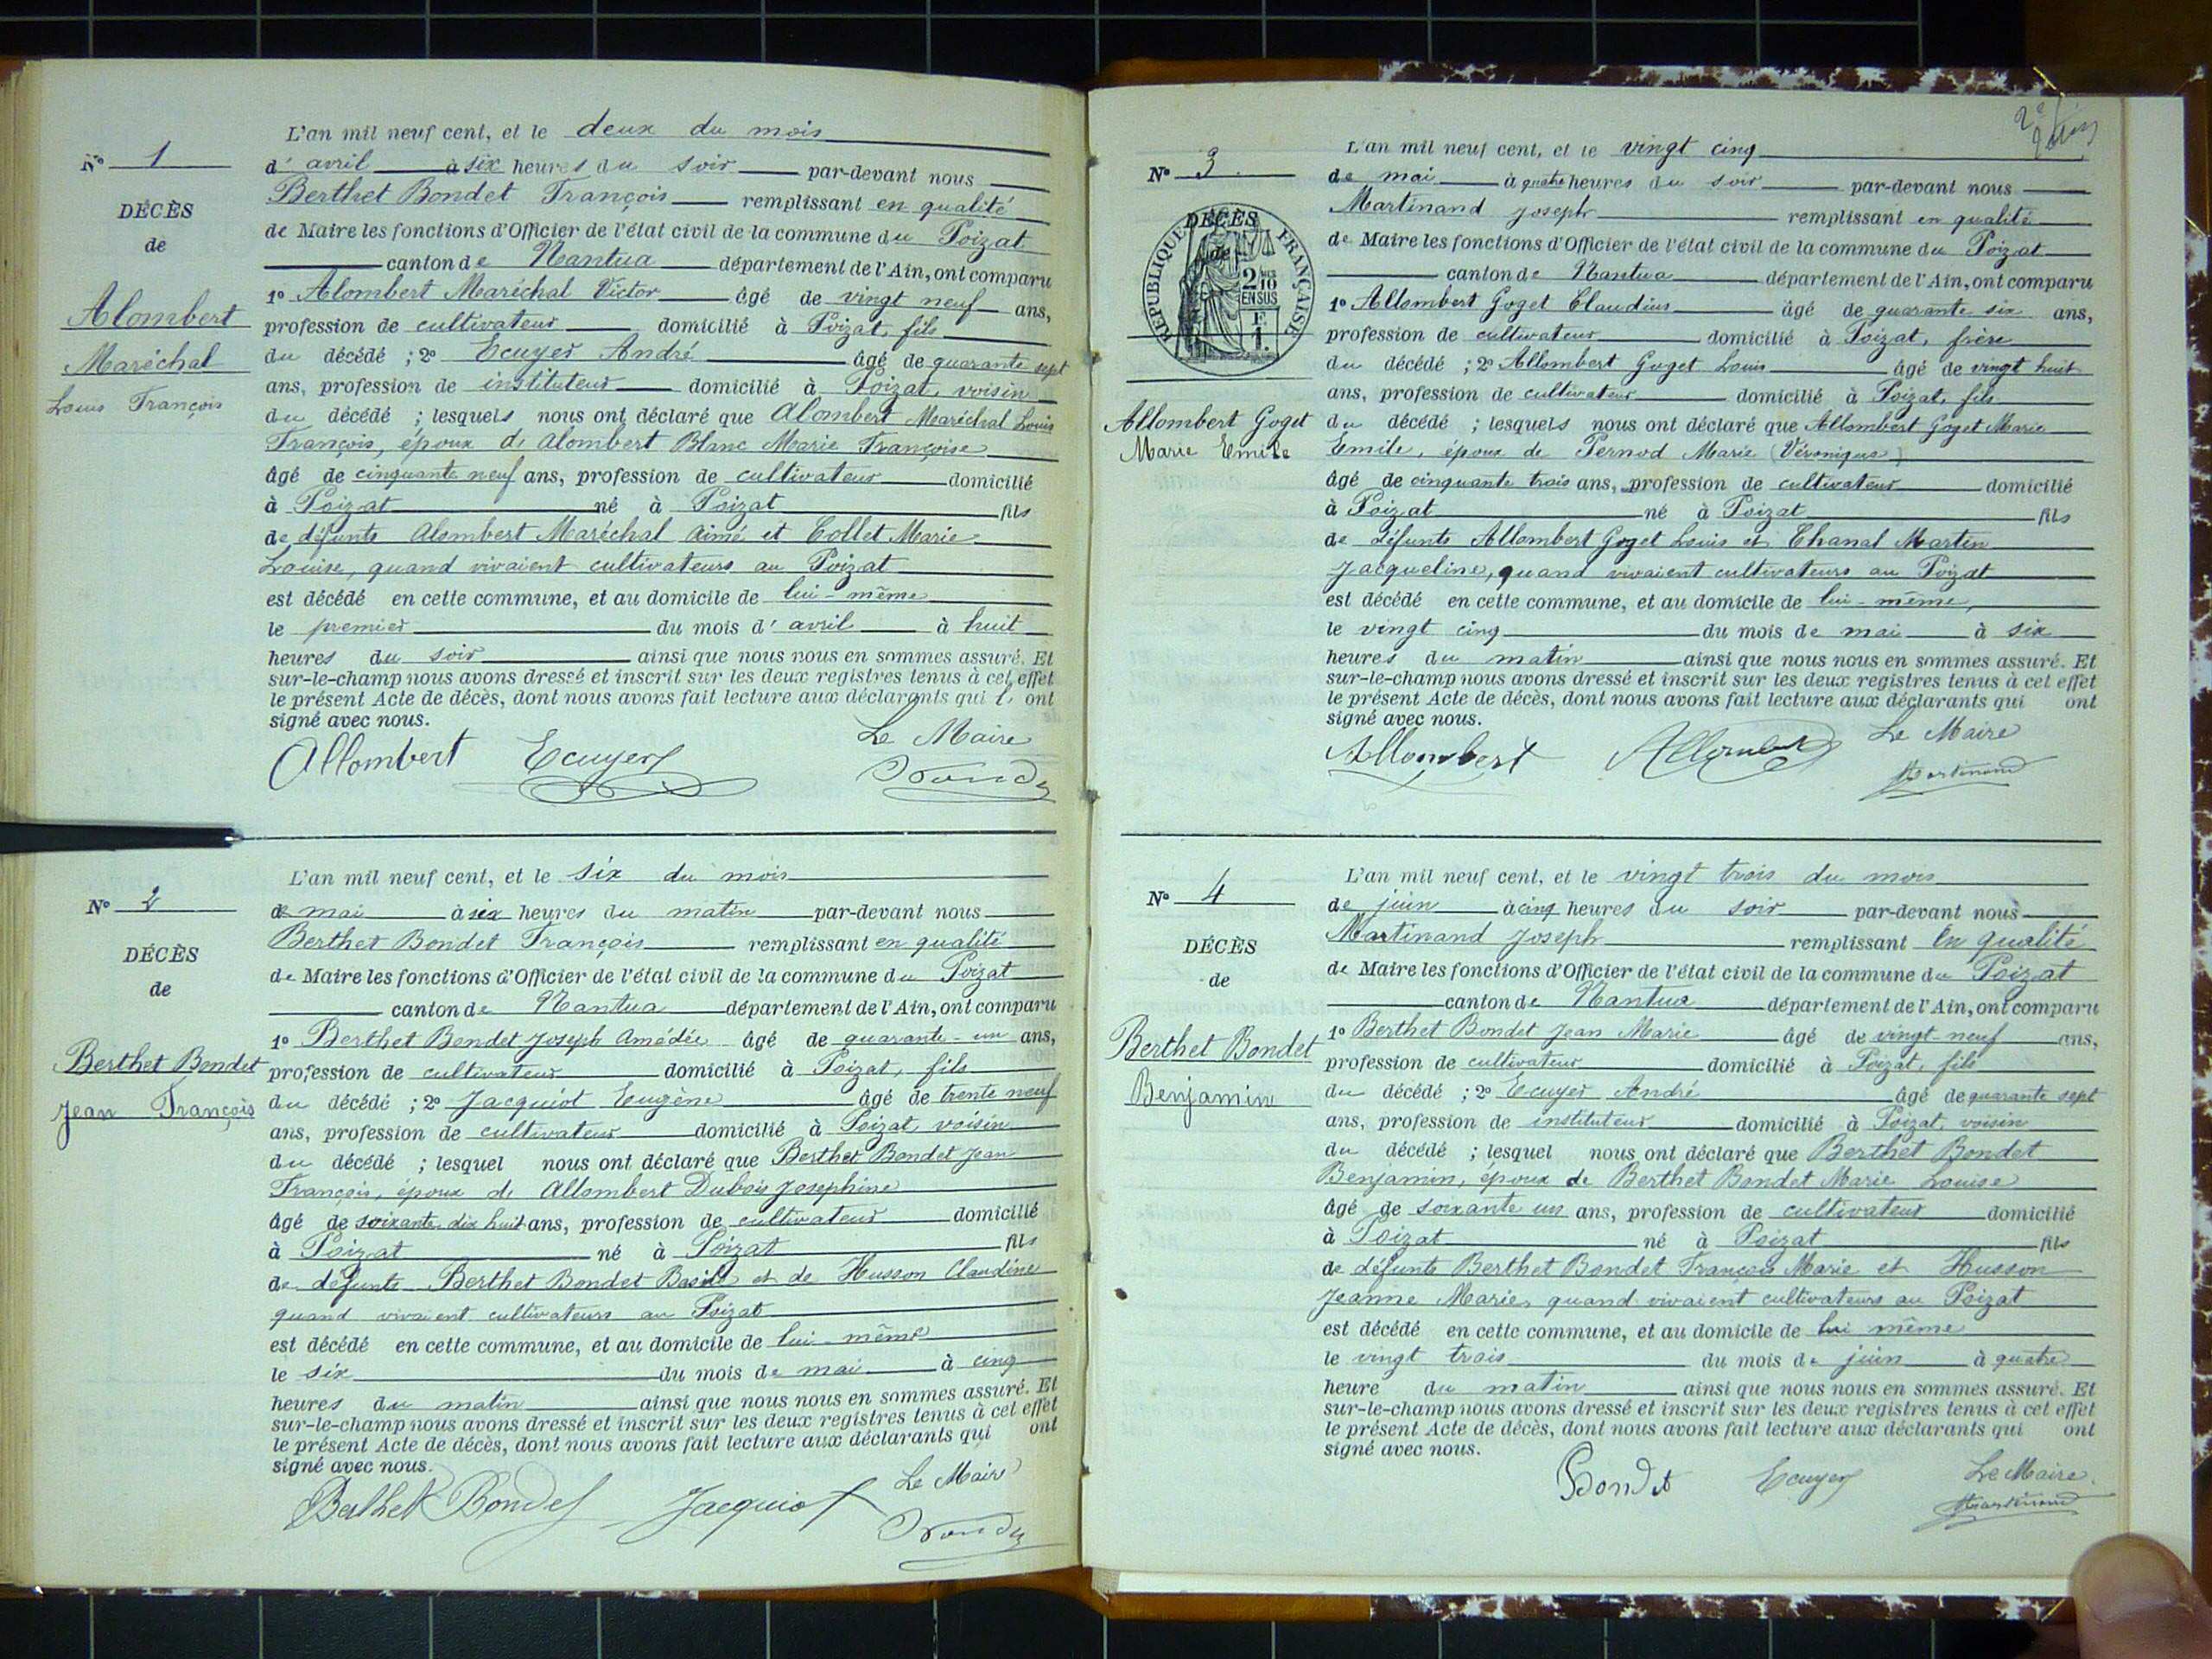 N° 1
DÉCÈS
de
Alombert
Maréchal
Louis François
L'an mil neuf cent, et le deux du mois
d' avril à six heures du soir par-devant nous
Berthet Bondet François remplissant en qualité
de Maire les fonctions d'Officier de l'état civil de la commune du Poizat
canton de Nantua département de l'Ain, ont comparu
1° Alombert Maréchal Victor âgé de vingt neuf ans,
profession de cultivateur domicilié à Poizat, fils
du décédé ; 2° Ecuyer André âgé de quarante sept
ans, profession de instituteur domicilié à Poizat, voisin
du décédé ; lesquels nous ont déclaré que Alombert Maréchal Louis
François, époux de Alombert Blanc Marie Françoise
âgé de cinquante neuf ans, profession de cultivateur domicilié
à Poizat né à Poizat fils
de défunts Alombert Maréchal Aimé et Collet Marie
Louise, quand vivaient cultivateurs au Poizat
est décédé en cette commune, et au domicile de lui-même
le premier du mois d' avril à huit
heures du soir ainsi que nous nous en sommes assuré. Et
sur-le-champ nous avons dressé et inscrit sur les deux registres tenus à cet effet
le présent Acte de décès, dont nous avons fait lecture aux déclarants qui l' ont
signé avec nous.
Le Maire
Allombert Ecuyer
N° 2
DÉCÈS
de
Berthet Bondet
Jean François
L'an mil neuf cent, et le six du mois
de mai à six heures du matin par-devant nous
Berthet Bondet François remplissant en qualité
de Maire les fonctions d'Officier de l'état civil de la commune du Poizat
canton de Nantua département de l'Ain, ont comparu
1° Berthet Bondet Joseph Amédée âgé de quarante-un ans,
profession de cultivateur domicilié à Poizat, fils
du décédé ; 2° Jacquiot Eugène âgé de trente neuf
ans, profession de cultivateur domicilié à Poizat, voisin
du décédé ; lesquel nous ont déclaré que Berthet Bondet Jean
François, époux de Allombert Dubois Josephine
âgé de soixante dix huit ans, profession de cultivateur domicilié
à Poizat né à Poizat fils
de défunts Berthet Bondet Basile et de Husson Claudine
quand vivaient cultivateurs au Poizat
est décédé en cette commune, et au domicile de lui-même
le six du mois de mai à cinq
heures du matin ainsi que nous nous en sommes assuré. Et
sur-le-champ nous avons dressé et inscrit sur les deux registres tenus à cet effet
le présent Acte de décès, dont nous avons fait lecture aux déclarants qui ont
signé avec nous.
Le Maire
Berthet Bondet Jacquiot
N° 3
DÉCÈS
de
RÉPUBLIQUE FRANÇAISE
2/10
EN SUS
F.
1.
Allombert Goget
Marie Emile
L'an mil neuf cent, et le vingt cinq
de mai à quatre heures du soir par-devant nous
Martinand Joseph remplissant en qualité
de Maire les fonctions d'Officier de l'état civil de la commune du Poizat
canton de Nantua département de l'Ain, ont comparu
1° Allombert Goget Claudius âgé de quarante six ans,
profession de cultivateur domicilié à Poizat, frère
du décédé ; 2° Allombert Goget Louis âgé de vingt huit
ans, profession de cultivateur domicilié à Poizat, fils
du décédé ; lesquels nous ont déclaré que Allombert Goget Marie
Emile, époux de Pernod Marie (Véronique)
âgé de cinquante trois ans, profession de cultivateur domicilié
à Poizat né à Poizat fils
de défunts Allombert Goget Louis et Chanal Martin
Jacqueline, quand vivaient cultivateurs au Poizat
est décédé en cette commune, et au domicile de lui-même,
le vingt cinq du mois de mai à six
heures du matin ainsi que nous nous en sommes assuré. Et
sur-le-champ nous avons dressé et inscrit sur les deux registres tenus à cet effet
le présent Acte de décès, dont nous avons fait lecture aux déclarants qui ont
signé avec nous.
Le Maire
Allombert Allombert Martinand
N° 4
DÉCÈS
de
Berthet Bondet
Benjamin
L'an mil neuf cent, et le vingt trois du mois
de juin à cinq heures du soir par-devant nous
Martinand Joseph remplissant en qualité
de Maire les fonctions d'Officier de l'état civil de la commune du Poizat
canton de Nantua département de l'Ain, ont comparu
1° Berthet Bondet Jean Marie âgé de vingt-neuf ans,
profession de cultivateur domicilié à Poizat, fils
du décédé ; 2° Ecuyer André âgé de quarante sept
ans, profession de instituteur domicilié à Poizat, voisin
du décédé ; lesquel nous ont déclaré que Berthet Bondet
Benjamin, époux de Berthet Bondet Marie Louise
âgé de soixante un ans, profession de cultivateur domicilié
à Poizat né à Poizat fils
de défunts Berthet Bondet François Marie et Husson
Jeanne Marie, quand vivaient cultivateurs au Poizat
est décédé en cette commune, et au domicile de lui même
le vingt trois du mois de juin à quatre
heure du matin ainsi que nous nous en sommes assuré. Et
sur-le-champ nous avons dressé et inscrit sur les deux registres tenus à cet effet
le présent Acte de décès, dont nous avons fait lecture aux déclarants qui ont
signé avec nous.
Bondet Ecuyer Le Maire
Martinand